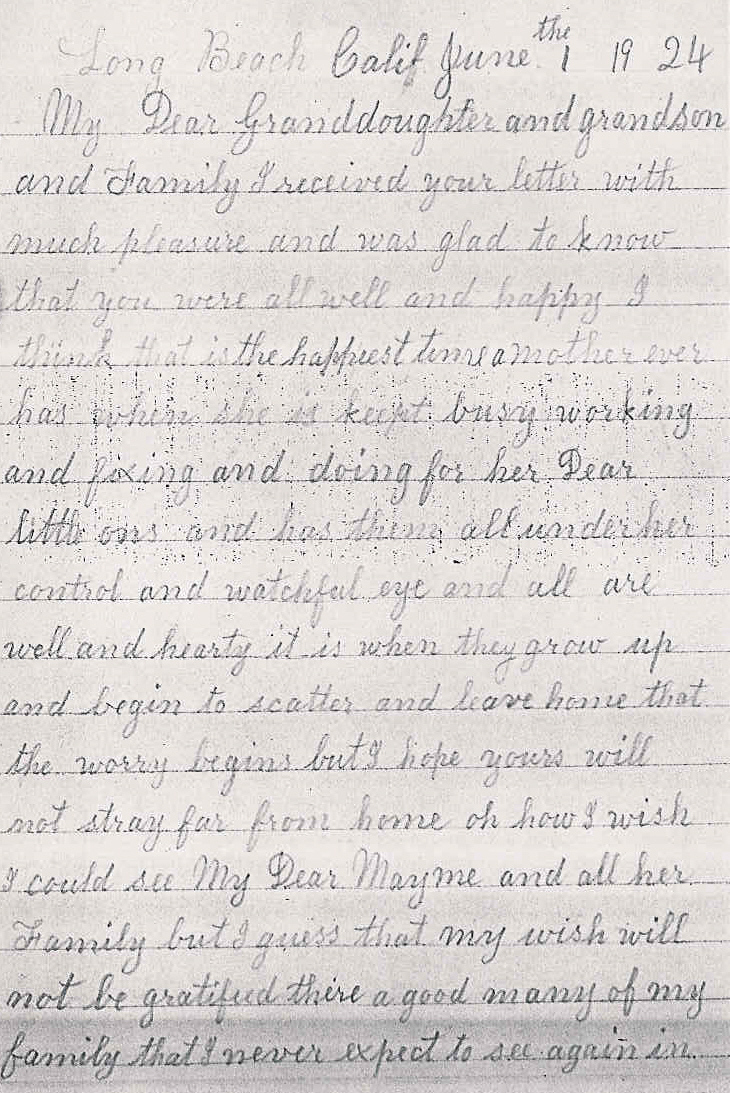 Long Beach Calif June the 1 19 24
My Dear Granddoughter and grandson
and Family I received your letter with
much pleasure and was glad to know
that you were all well and happy I
think that is the happiest time a mother ever
has when she is keept busy working
and fixing and doing for her Dear
little ons and has them all under her
control and watchful eye and all are
well and hearty it is when they grow up
and begin to scatter and leave home that
the worry begins but I hope yours will
not stray far from home oh how I wish
I could see My Dear Mayme and all her
Family but I guess that my wish will
not be gratified there a good many of my
family that I never expect to see again in